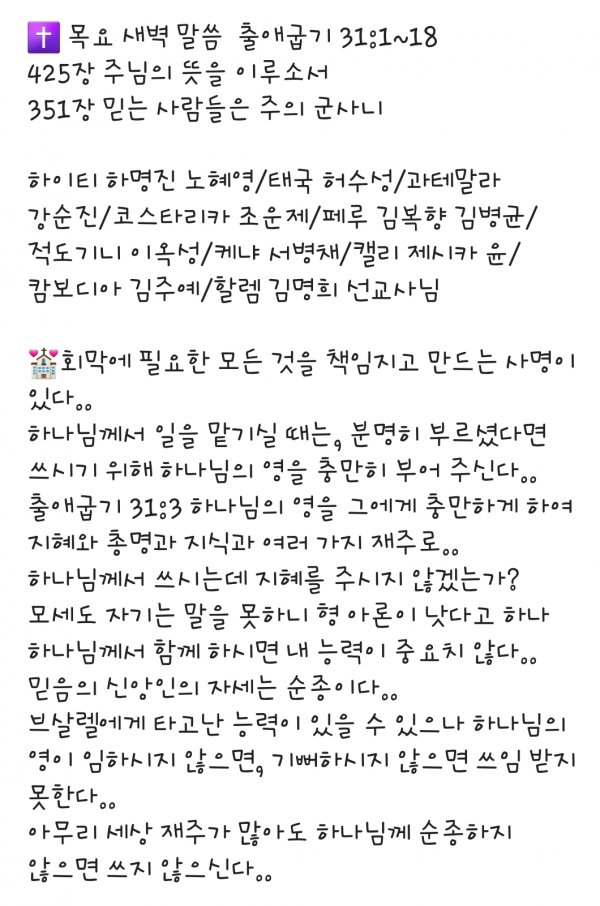 ✝️ 목요 새벽 말씀 출애굽기 31:1~18
425장 주님의 뜻을 이루소서
351장 믿는 사람들은 주의 군사니
하이티 하명진 노혜영/태국 허수성/과테말라
강순진/코스타리카 조운제/페루 김복향 김병균/
적도기니 이옥성/케냐 서병채/캘리 제시카 윤/
캄보디아 김주예/할렘 김명희 선교사님
💒회막에 필요한 모든 것을 책임지고 만드는 사명이
있다..
하나님께서 일을 맡기실 때는, 분명히 부르셨다면
쓰시기 위해 하나님의 영을 충만히 부어 주신다..
출애굽기 31:3 하나님의 영을 그에게 충만하게 하여
지혜와 총명과 지식과 여러 가지 재주로..
하나님께서 쓰시는데 지혜를 주시지 않겠는가?
모세도 자기는 말을 못하니 형 아론이 낫다고 하나
하나님께서 함께 하시면 내 능력이 중요치 않다..
믿음의 신앙인의 자세는 순종이다..
브살렐에게 타고난 능력이 있을 수 있으나 하나님의
영이 임하시지 않으면, 기뻐하시지 않으면 쓰임 받지
못한다..
아무리 세상 재주가 많아도 하나님께 순종하지
않으면 쓰지 않으신다..